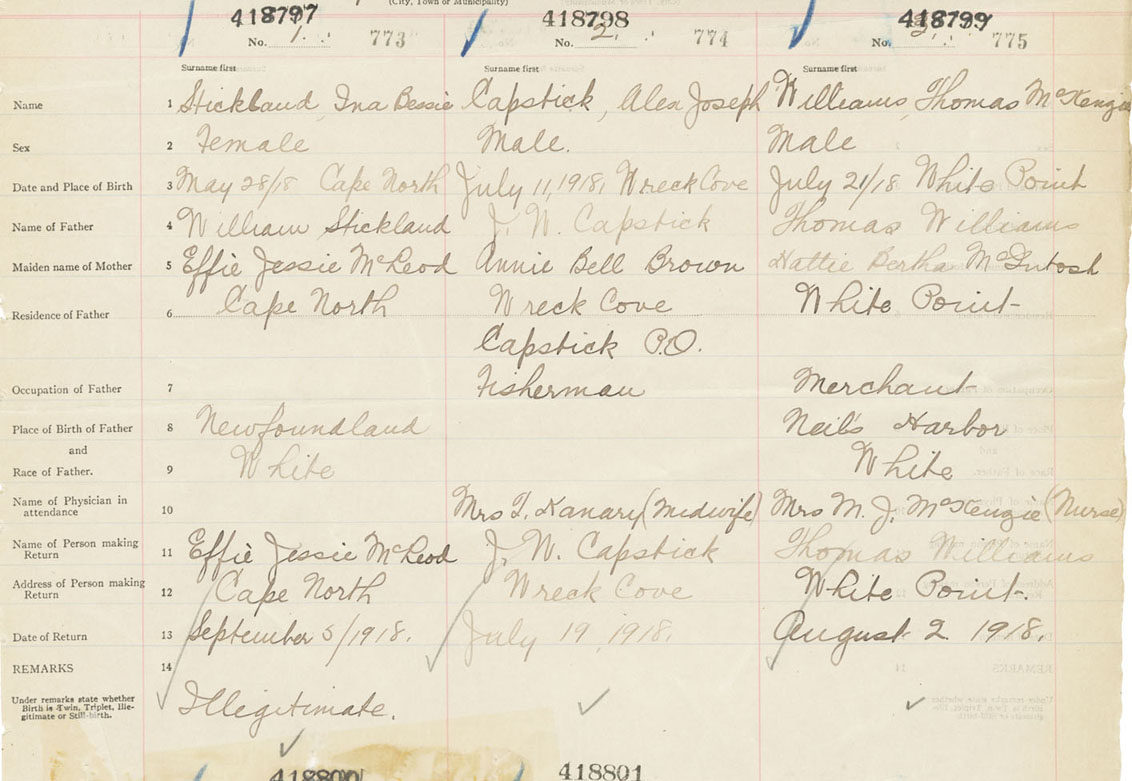 (City, Town or Municipality)
418797 418798 418799
No. 1. 773 No. 2. 774 No. 3. 775
Surname first Surname first Surname first
Name 1 Stickland, Ina Bessie Capstick, Alex Joseph Williams, Thomas McKenzie
Sex 2 Female Male. Male
Date and Place of Birth 3 May 28/18 Cape North July 11, 1918, Wreck Cove July 21/18 White Point
Name of Father 4 William Stickland J. W. Capstick Thomas Williams
Maiden name of Mother 5 Effie Jessie McLeod Annie Bell Brown Hattie Bertha McIntosh
Residence of Father 6 Cape North Wreck Cove White Point
Capstick P.O.
Occupation of Father 7 Fisherman Merchant
Place of Birth of Father 8 Newfoundland Neil's Harbor
and
Race of Father. 9 White White
Name of Physician in
attendance 10 Mrs T. Kanary (Midwife) Mrs M. J. McKenzie (Nurse)
Name of Person making
Return 11 Effie Jessie McLeod J. W. Capstick Thomas Williams
Address of Person making
Return 12 Cape North Wreck Cove White Point.
Date of Return 13 September 5/1918. July 19, 1918. August 2 1918.
REMARKS 14
Under remarks state whether
Birth is Twin, Triplet, Ille-
gitimate or Still-birth. Illegitimate.
418800 418801